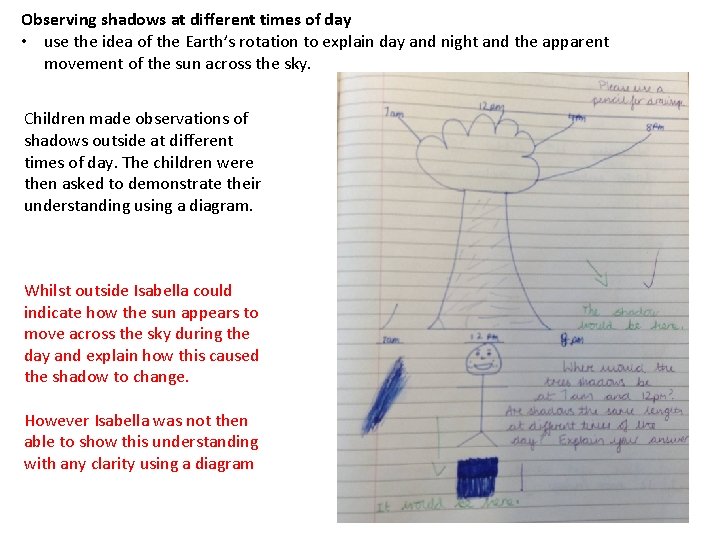 Observing shadows at different times of day
• use the idea of the Earth's rotation to explain day and night and the apparent
movement of the sun across the sky.
Children made observations of
shadows outside at different
times of day. The children were
then asked to demonstrate their
understanding using a diagram.
Whilst outside Isabella could
indicate how the sun appears to
move across the sky during the
day and explain how this caused
the shadow to change.
However Isabella was not then
able to show this understanding
with any clarity using a diagram
Please use a
pencil for drawings
7am
12pm
4pm
8pm
The shadow
would be here.
7am
12pm
8pm
Where would the
trees shadows be
at 7am and 12pm?
Are shadows the same length
at different times of the
day? Explain your answer
It would be here.